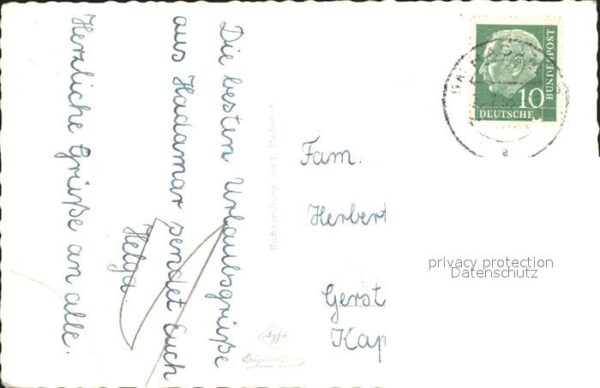 Die besten Urlaubsgrüße
aus Hadamar sendet Euch
Helga
Herzliche Grüße an alle.
Fam.
Herbert
Gerst
Kap
10
DEUTSCHE
BUNDESPOST
privacy protection
Datenschutz
Agfa